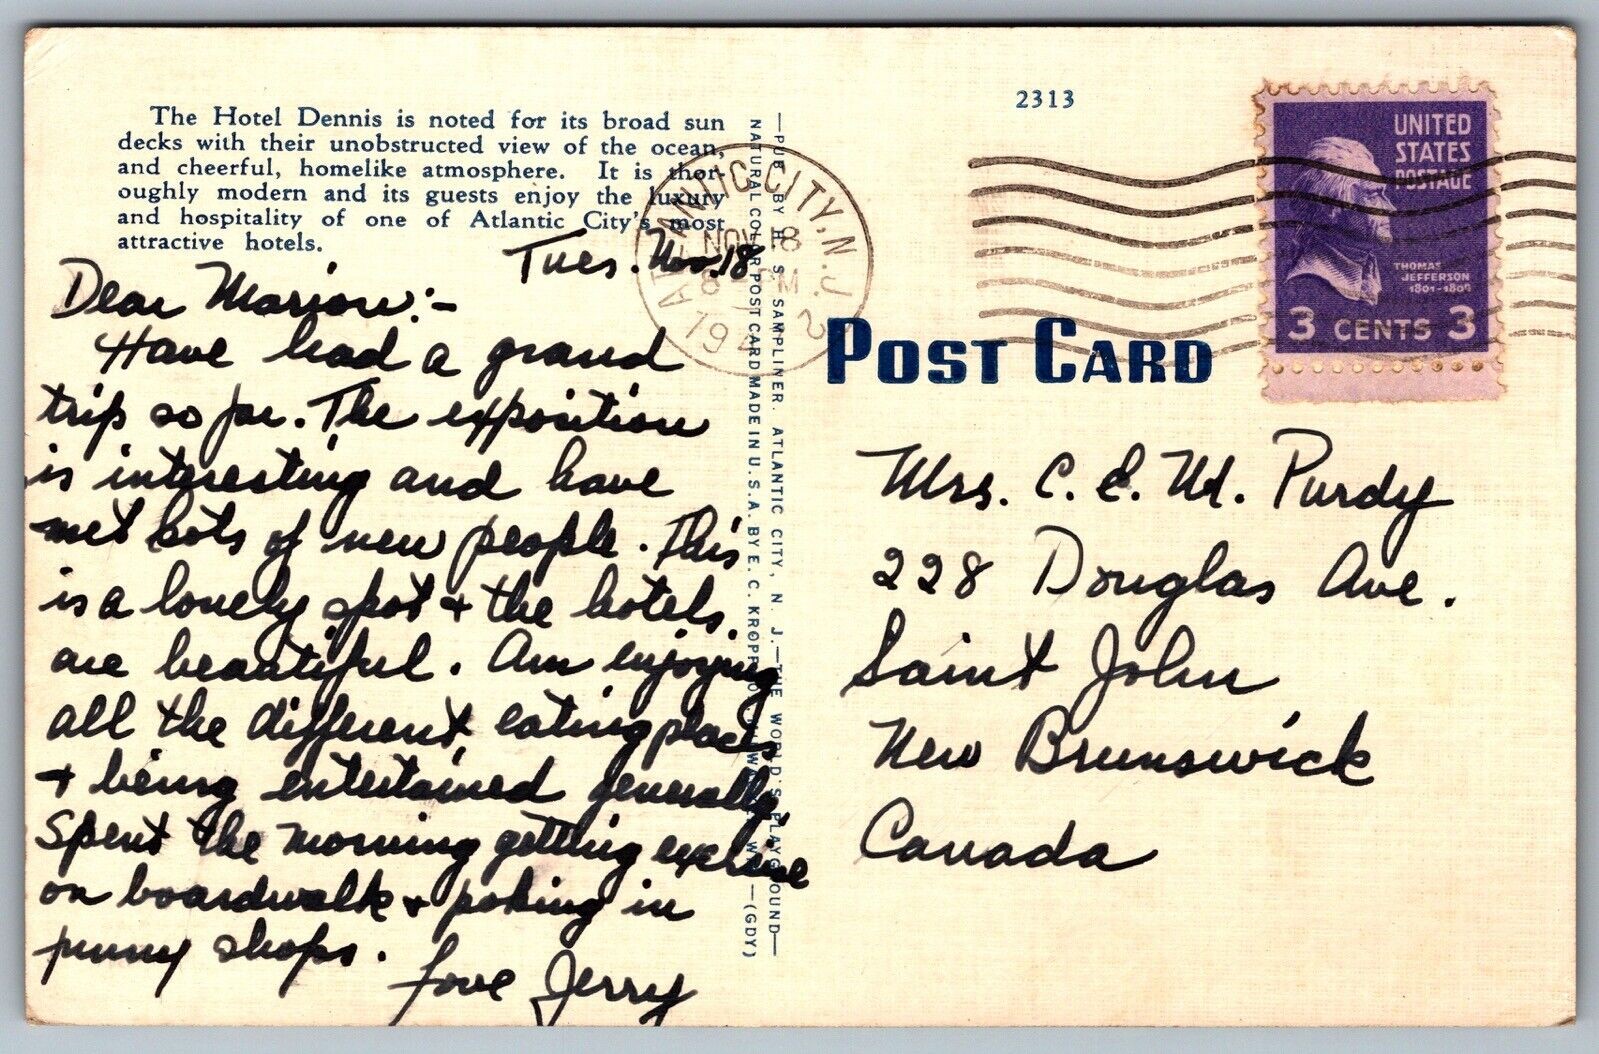 The Hotel Dennis is noted for its broad sun
decks with their unobstructed view of the ocean,
and cheerful, homelike atmosphere. It is thor-
oughly modern and its guests enjoy the luxury
and hospitality of one of Atlantic City's most
attractive hotels.
Tues. Nov. 18
Dear Marion:-
Have had a grand
trip so far. The exposition
is interesting and have
met lots of new people. This
is a lovely spot + the hotels.
are beautiful. Am enjoying
all the different eating places
+ being entertained generally.
Spent the morning getting exercise
on boardwalk + poking in
funny shops.
Love Jerry
—PUB. BY H. S. SAMPLINER, ATLANTIC CITY, N. J.—THE WORLD'S PLAYGROUND—
NATURAL COLOR POST CARD MADE IN U.S.A. BY E. C. KROPP CO. (GDY)
ATLANTIC CITY, N.J.
NOV 18
8 PM
19 2
2313
UNITED
STATES
POSTAGE
THOMAS
JEFFERSON
1801-1809
3 CENTS 3
POST CARD
Mrs. C. E. M. Purdy
228 Douglas Ave.
Saint John
New Brunswick
Canada